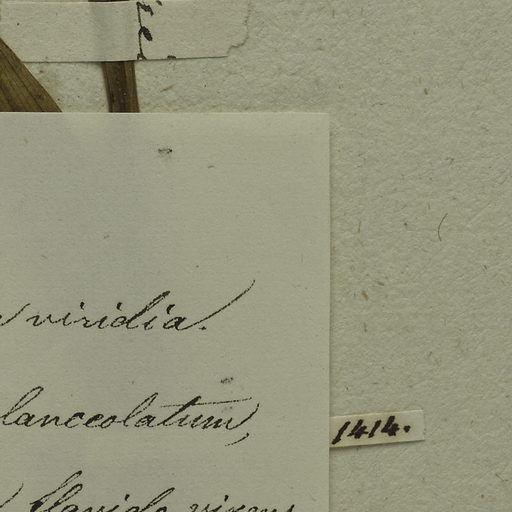 viridia.
lanceolatum,
1414.
flavido virens